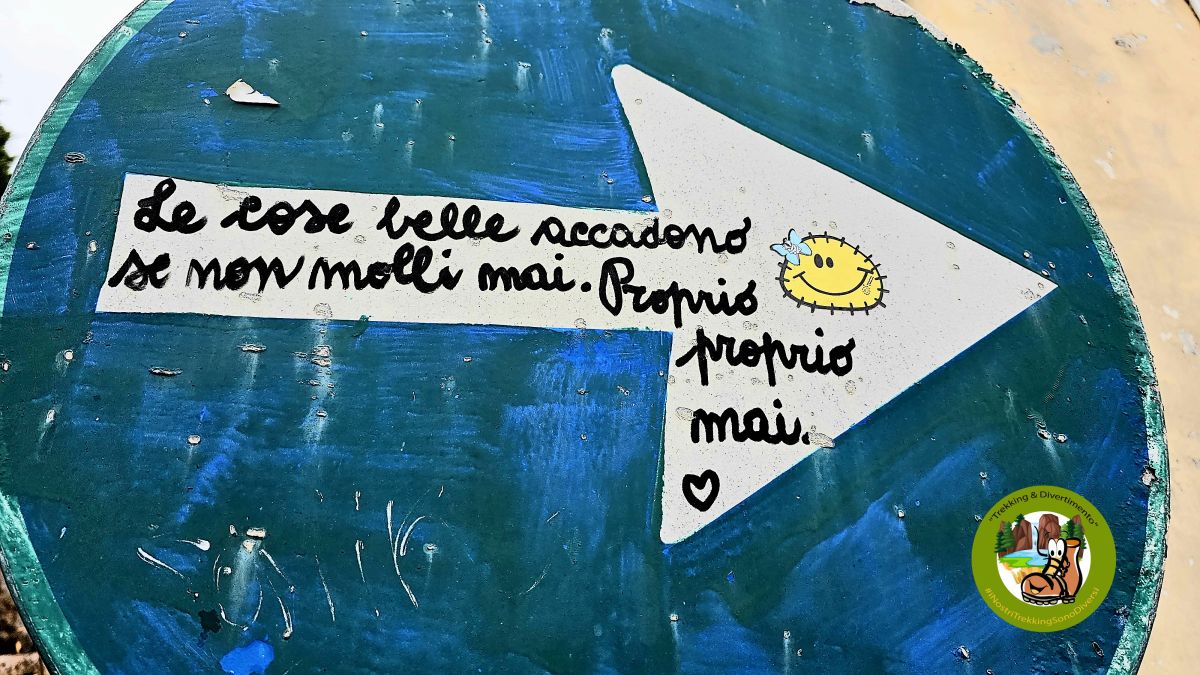 Le cose belle accadono
se non molli mai. Proprio
proprio
mai.
"Trekking & Divertimento"
#iNostriTrekkingSonoDiversi